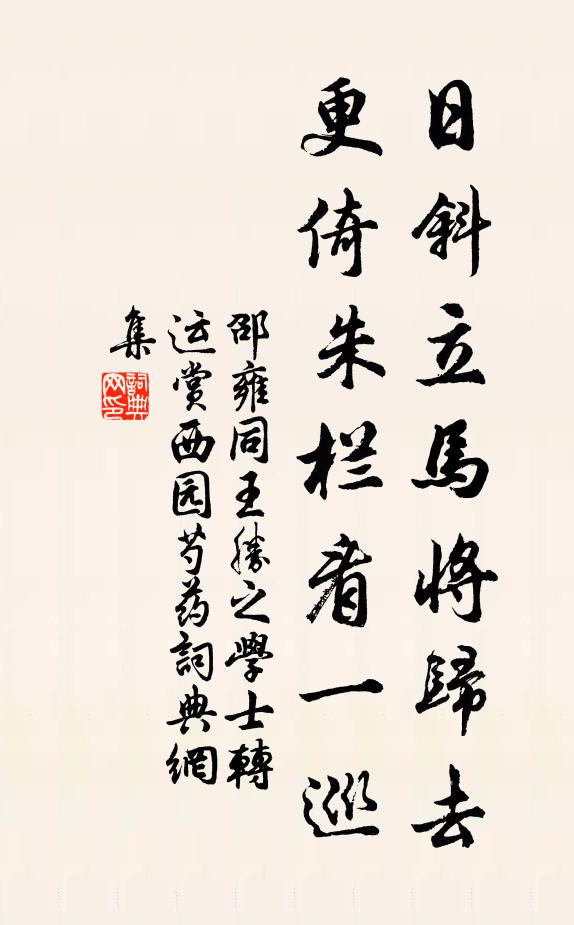 日斜立馬將歸去
更倚朱栏看一巡
邵雍同王勝之學士轉
运賞西园芍药詞典網
集
詞典网印